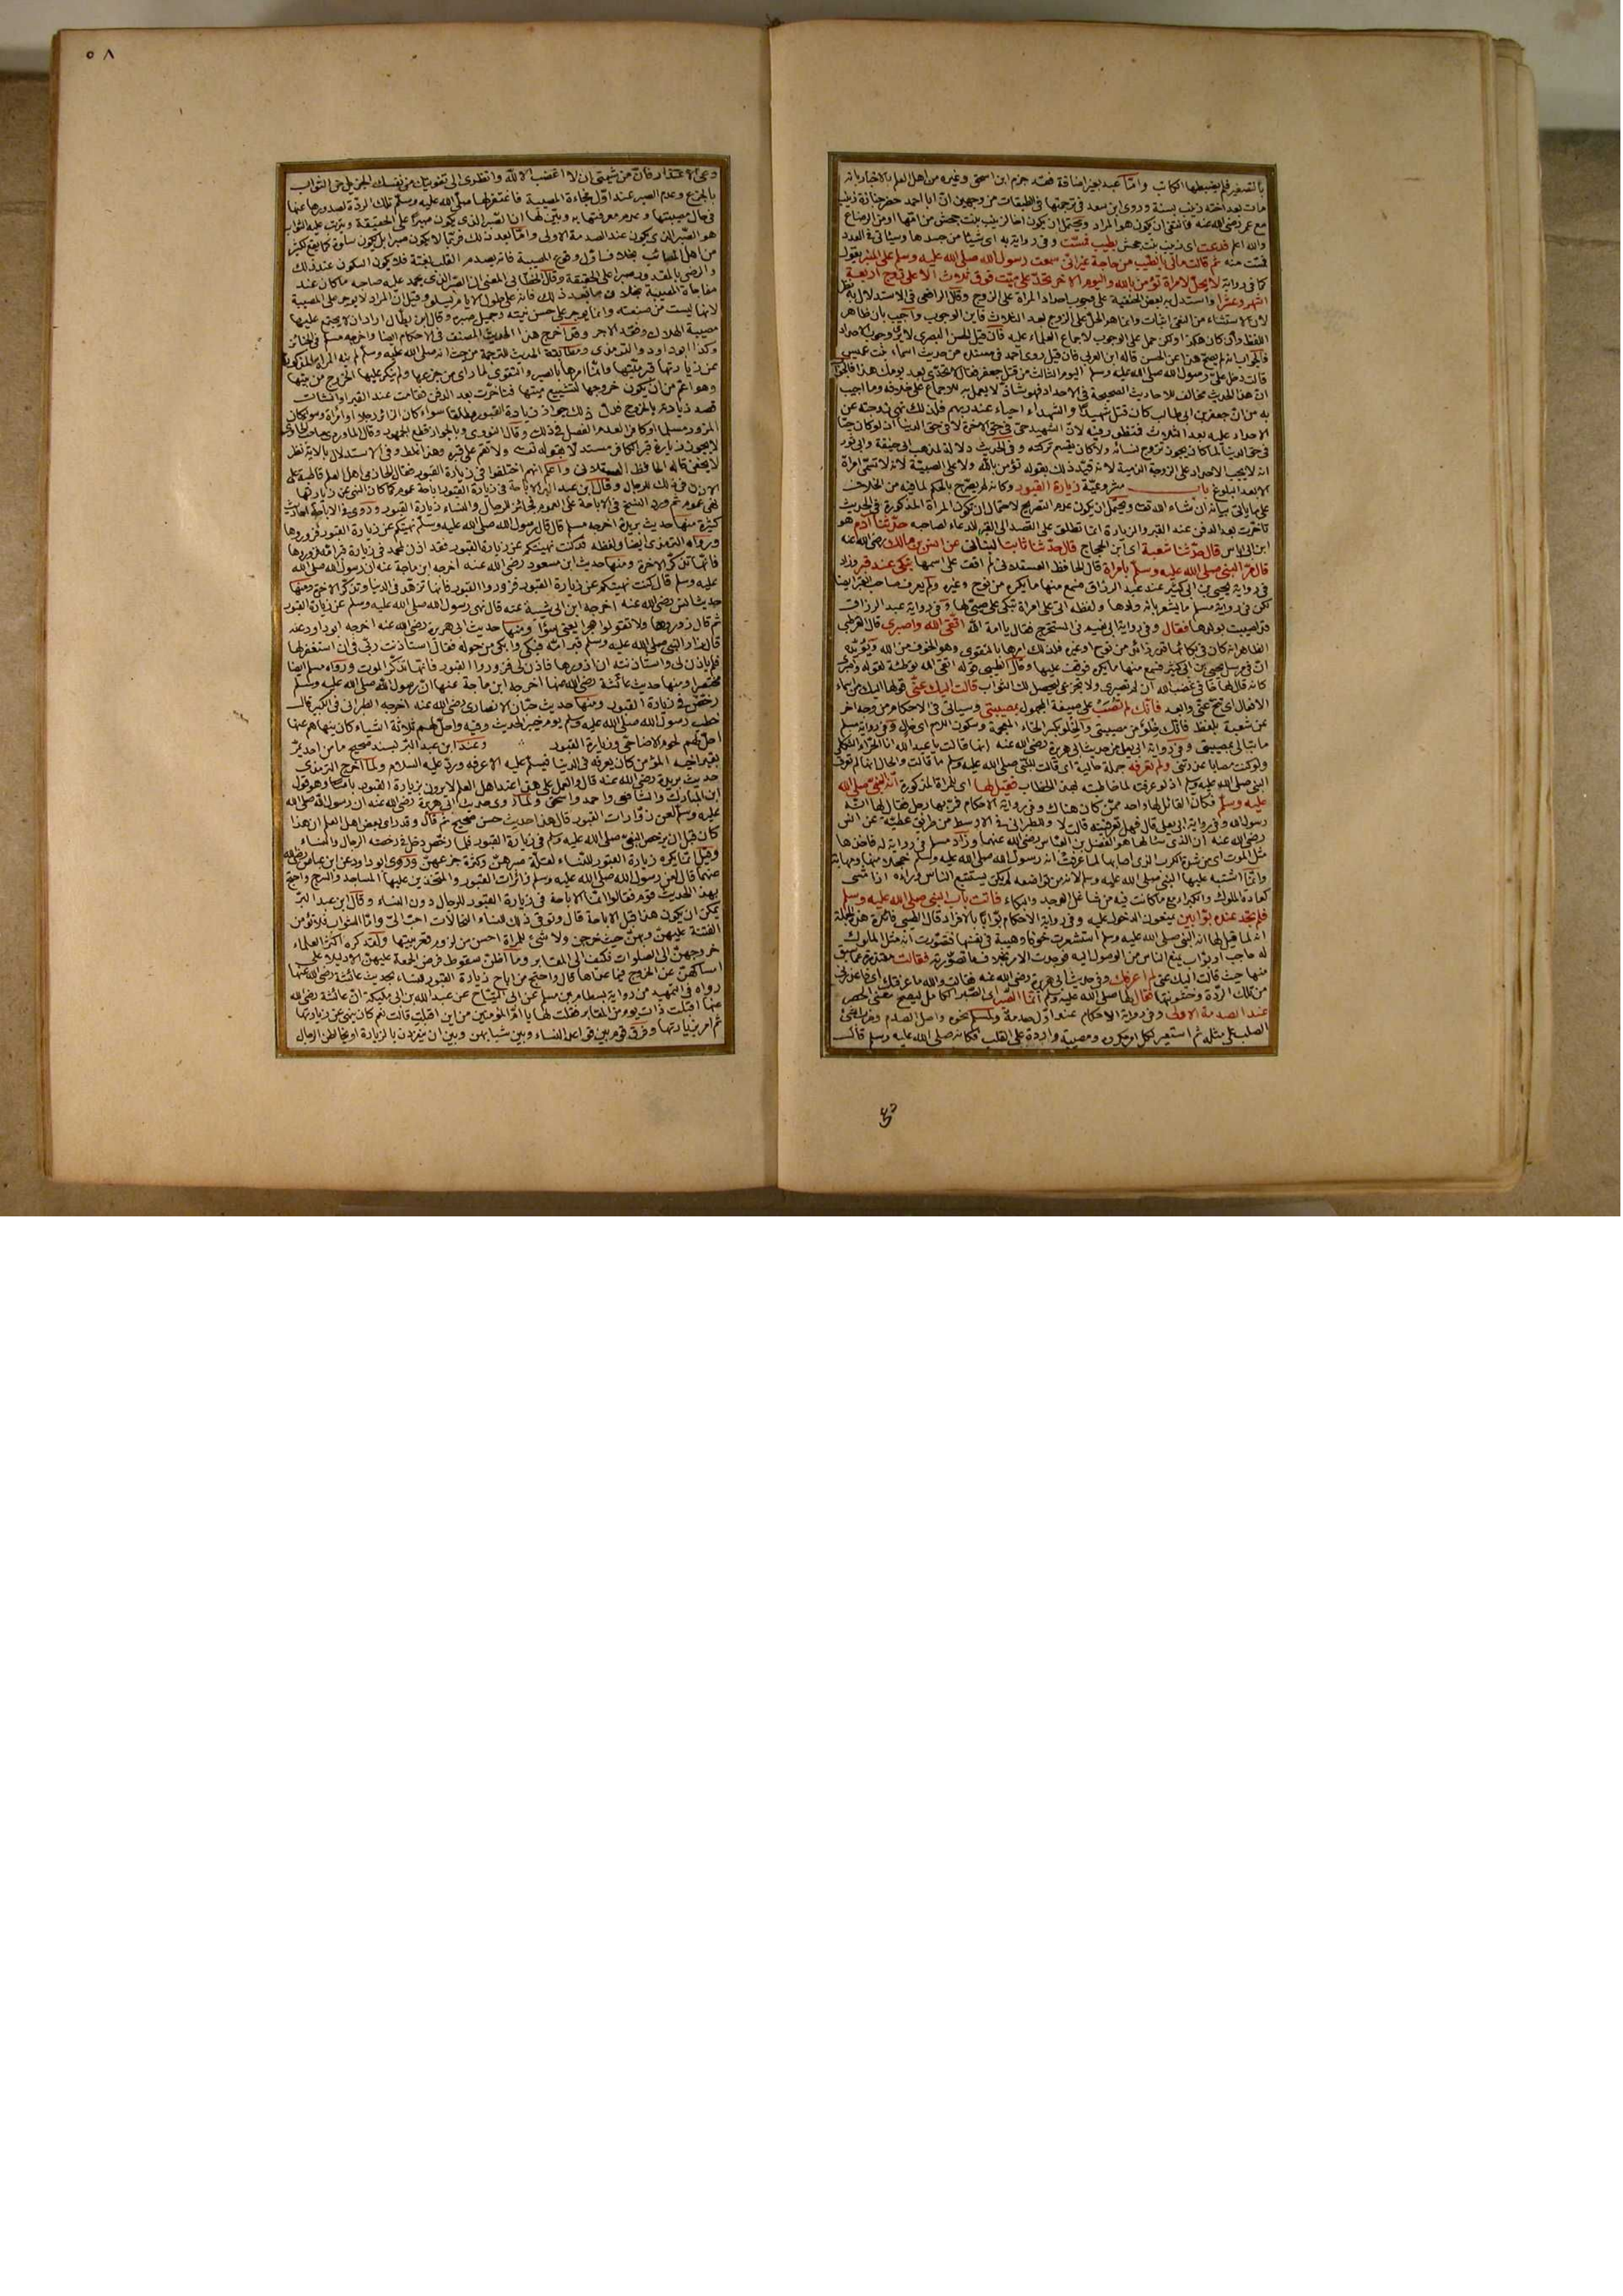 بالتصغير فلم يضبطها الكاتب وامّا عبد بغير اضافة فقد جزم ابن اسحق وغيره من اهل العلم بالاخبار بانه
مات بعد اخته زينب بسنة وروى ابن سعد في ترجمتها في الطبقات من وجهين انّ ابا احمد حضر جنازة زينب
مع عمر رضي الله عنه فانتفى ان يكون هو المراد ويحتمل ان يكون اخا لزينب بنت جحش من امّها او من الرضاع
والله اعلم فدعت اى زينب بنت جحش بطيب فمسّت وفى رواية به اى شيئا من جسدها وسيأتى فى العدد
فمسّت منه ثم قالت مالى بالطيب من حاجة غير انى سمعت رسول الله صلى الله عليه وسلم على المنبر يقول
كما فى رواية لا يحلّ لامرأة تؤمن بالله واليوم الآخر تحدّ على ميّت فوق ثلاث الّا على زوج اربعة
اشهر وعشرا واستدل به بعض الحنفية على وجوب احداد المرأة على الزوج وقال الرافعى فى الاستدلال به نظر
لان الاستثناء من النفى اثبات وانما هو الحلّ على الزوج بعد الثلاث فاين الوجوب واجيب بان ظاهر
اللفظ وان كان هكذا ولكن حمل على الوجوب لاجماع العلماء عليه فان قيل الحسن البصرى لا يرى وجوب الاحداد
فالجواب انه لم يصح هذا عن الحسن قاله ابن العربى فان قيل روى احمد فى مسنده من حديث اسماء بنت عميس
قالت دخل علىّ رسول الله صلى الله عليه وسلم اليوم الثالث من قتل جعفر فقال لا تحدّى بعد يومك هذا فالجواب
انّ هذا الحديث مخالف للاحاديث الصحيحة فى الاحداد فهو شاذ لا يعمل به للاجماع على خلافه وما اجيب
به من انّ جعفر بن ابى طالب كان قتل شهيدا والشهداء احياء عند ربهم فلذلك نهى زوجته عن
الاحداد عليه بعد الثلاث فمنظور فيه لانّ الشهيد حىّ فى حقّ الآخرة لا فى حقّ الدنيا اذ لو كان حيّا
فى حق الدنيا لما كان يجوز تزوج نسائه ولا كان يقسم تركته وفى الحديث دلالة لمذهب ابى حنيفة وابى ثور
انه لا يجب الاحداد على الزوجة الذمية لانه قيّد ذلك بقوله تؤمن بالله ولا على الصبيّة لانه لا تسمّى امرأة
الا بعد البلوغ باب مشروعيّة زيارة القبور وكانه لم يصرّح بالحكم لما فيه من الخلاف
على ما يأتى بيانه ان شاء الله تعالى ويحتمل ان يكون عدم التصريح لاحتمال ان يكون المرأة المذكورة فى الحديث
تأخرت بعد الدفن عند القبر والزيارة انما تطلق على القصد الى القبر للدعاء لصاحبه حدّثنا آدم هو
ابن ابى اياس قال حدّثنا شعبة اى ابن الحجاج قال حدّثنا ثابت البنانى عن انس بن مالك رضى الله عنه
قال مرّ النبى صلى الله عليه وسلم بامرأة قال الحافظ العسقلانى لم اقف على اسمها تبكى عند قبر وزاد
فى رواية يحيى بن ابى كثير عند عبد الرزاق فسمع منها ما يكره من نوح وغيره ولم يعرف صاحب القبر ايضا
لكن فى رواية مسلم ما يشعر بانه ولدها ولفظه اتى على امرأة تبكى على صبىّ لها وفى رواية عبد الرزاق
قد اصيبت بولدها فقال وفى رواية ابى نعيم فى المستخرج فقال يا امة الله اتّقى الله واصبرى قال القرطبى
الظاهر انه كان فى بكائها قدر زائد من نوح او غيره فلذلك امرها بالتقوى وهو الخوف من الله ويؤيّده
انّ فى مرسل يحيى بن ابى كثير فسمع منها ما يكره فوقف عليها وقال الطيبى قوله اتقى الله توطئة لقوله واصبرى
كانه قال لها خافى غضب الله ان لم تصبرى ولا تجزعى ليحصل لك الثواب قالت اليك عنّى قولها اليك من اسماء
الافعال اى تنحّ عنّى وابعد فانّك لم تصب على صيغة المجهول بمصيبتى وسيأتى فى الاحكام من وجه اخر
عن شعبة بلفظ فانّك خلو من مصيبتى والخلو بكسر الخاء المعجمة وسكون اللام اى خال وفى رواية مسلم
ما تبالى بمصيبتى وفى رواية ابى يعلى من حديث ابى هريرة رضى الله عنه انها قالت يا عبد الله انا الحرّاء الثكلى
ولو كنت مصابا عذرتنى ولم تعرفه جملة حالية اى قالت للنبى صلى الله عليه وسلم ما قالت والحال انها لم تعرف
النبى صلى الله عليه وسلم اذ لو عرفته لما خاطبته بهذا الخطاب فقيل لها اى للمرأة المذكورة انّه النبىّ صلى الله
عليه وسلّم فكان القائل لها واحد ممّن كان هناك وفى رواية الاحكام فمرّ بها رجل فقال لها انّه
رسول الله وفى رواية ابى يعلى قال فهل تعرفينه قالت لا وللطبرانى فى الاوسط من طريق عطيّة عن انس
رضى الله عنه انّ الذى سألها هو الفضل بن العباس رضى الله عنهما وزاد مسلم فى رواية له فاخذها
مثل الموت اى من شدة الكرب الذى اصابها لما عرفت انه رسول الله صلى الله عليه وسلم خجلا منها ومهابة
وانّما اشتبه عليها النبى صلى الله عليه وسلم لانه من تواضعه لم يكن يستتبع الناس وراءه اذا مشى
كعادة الملوك والكبراء مع ما كانت فيه من شاغل الوجد والبكاء فاتت باب النبى صلى الله عليه وسلم
فلم تجد عنده بوّابين يمنعون الدخول عليه وفى رواية الاحكام بوّابا بالافراد قال الطيبى فائدة هذه الجملة
انه لما قيل لها انه النبى صلى الله عليه وسلم استشعرت خوفا وهيبة فى نفسها فتصوّرت انه مثل الملوك
له حاجب او بوّاب يمنع الناس من الوصول اليه فوجدت الامر بخلاف ما تصوّرته فقالت معتذرة عما سبق
منها حيث قالت اليك عنى لم اعرفك وفى حديث ابى هريرة رضى الله عنه فقالت والله ما عرفتك
من تلك الردّة وخشونتها فقال لها صلى الله عليه وسلم انّما الصّبر اى الصبر الكامل ليصح معنى الحصر
عند الصدمة الاولى وفى رواية الاحكام عند اوّل صدمة ولمسلم نحوه واصل الصدم ضرب الشئ
الصلب على مثله ثم استعير لكل امر مكروه ومصيبة واردة على القلب فكانه صلى الله عليه وسلم قال
٥٨
دعى الاعتذار فانّ من شيمتى ان لا اغضب الّا لله وانظرى الى تفويتك من نفسك الجزيل من الثواب
بالجزع وعدم الصبر عند اوّل مفاجاءة المصيبة فاغتفر لها صلّى الله عليه وسلّم تلك الردّة لصدورها عنها
فى حال مصيبتها وعدم معرفتها به وبيّن لها ان الصبر الذى يكون صبرا على الحقيقة ويترتب عليه الثواب
هو الصّبر الذى يكون عند الصدمة الاولى وامّا بعد ذلك فربّما لا يكون صبرا بل يكون سلوة كما يقع لكثير
من اهل المصائب بخلاف اوّل وقوع المصيبة فانه يصدم القلب بغتة فلا يكون السكون عند ذلك
والرضى بالمقدور صبرا على الحقيقة وقال الخطّابى المعنى ان الصّبر الذى يحمد عليه صاحبه ما كان عند
مفاجاة المصيبة بخلاف ما بعد ذلك فانه على طول الايام يسلو وقيل انّ المراد لا يوجر على المصيبة
لانها ليست من صنعه وانما يوجر على حسن نيّته وجميل صبره وقال ابن بطّال اراد ان لا يجتمع عليها
مصيبة الهلاك وفقد الاجر وقد اخرج هذا الحديث المصنف فى الاحكام ايضا واخرجه مسلم فى الجنائز
وكذا ابو داود والترمذى ومطابقة الحديث للترجمة من حيث انه صلى الله عليه وسلم لم ينه المرأة المذكورة
عن زيارتها قبر ميّتها وانّما امرها بالصبر والتقوى لما رأى من جزعها ولم ينكر عليها الخروج من بيتها
وهو اعمّ من ان يكون خروجها لتشييع ميتها فتأخرت بعد الدفن فقامت عند القبر او انشأت
قصد زيارته بالخروج فدلّ ذلك جواز زيادة القبور مطلقا سواء كان الزائر رجلا او امرأة وسواء كان
المزور مسلما او كافرا لعدم الفصل فى ذلك وقال النووى وبالجواز قطع الجمهور وقال الماوردى صاحب الحاوى
لا يجوز زيارة قبر الكافر مستدلّا بقوله تعالى ولا تقم على قبره وهذا غلط وفى الاستدلال بالاية نظر
لا يخفى قاله الحافظ العسقلانى واعلم انهم اختلفوا فى زيارة القبور فقال الحازمى اهل العلم قاطبة على
الاذن فى ذلك للرجال وقال ابن عبد البرّ الاباحة فى زيارة القبور اباحة عموم كما كان النهى عن زيارتها
نهى عموم ثم ورد النسخ فى الاباحة على العموم فجائز للرجال والنساء زيارة القبور وروى فى الاباحة احاديث
كثيرة منها حديث بريدة اخرجه مسلم قال قال رسول الله صلى الله عليه وسلم نهيتكم عن زيارة القبور فزوروها
ورواه الترمذى ايضا ولفظه قد كنت نهيتكم عن زيارة القبور فقد اذن لمحمد فى زيارة قبر امّه فزوروها
فانّها تذكّر الاخرة ومنها حديث ابن مسعود رضى الله عنه اخرجه ابن ماجة عنه ان رسول الله صلى الله
عليه وسلم قال كنت نهيتكم عن زيارة القبور فزوروا القبور فانها تزهّد فى الدنيا وتذكّر الآخرة ومنها
حديث انس رضى الله عنه اخرجه ابن ابى شيبة عنه قال نهى رسول الله صلى الله عليه وسلم عن زيارة القبور
ثم قال زوروها ولا تقولوا هجرا يعنى سوءا ومنها حديث ابى هريرة رضى الله عنه اخرجه ابو داود عنه
قال زار النبى صلى الله عليه وسلم قبر امّه فبكى وابكى من حوله فقال استأذنت ربّى فى ان استغفر لها
فلم يأذن لى واستأذنته ان ازورها فاذن لى فزوروا القبور فانها تذكّر الموت ورواه مسلم ايضا
مختصرا ومنها حديث عائشة رضى الله عنها اخرجه ابن ماجة عنها انّ رسول الله صلى الله عليه وسلّم
رخّص فى زيارة القبور ومنها حديث حبّان الانصارى رضى الله عنه اخرجه الطبرانى فى الكبير قال
خطب رسول الله صلى الله عليه وسلم يوم خيبر الحديث وفيه واحلّ لهم ثلاثة اشياء كان ينهاهم عنها
احلّ لهم لحوم الاضاحى وزيارة القبور وعند ابن عبد البرّ بسند صحيح ما من احد يمرّ
بقبر اخيه المؤمن كان يعرفه فى الدنيا فيسلّم عليه الا عرفه وردّ عليه السلام ولما اخرج الترمذى
حديث بريدة رضى الله عنه قال والعمل على هذا عند اهل العلم لا يرون بزيارة القبور بأسا وهو قول
ابن المبارك والشافعى واحمد واسحق ولمّا روى حديث ابى هريرة رضى الله عنه ان رسول الله صلى الله
عليه وسلّم لعن زوّارات القبور قال هذا حديث حسن صحيح ثم قال وقد راى بعض اهل العلم ان هذا
كان قبل ان يرخّص النبىّ صلى الله عليه وسلم فى زيارة القبور فلما رخّص دخل فى رخصته الرجال والنساء
وقيل انما يكره زيارة القبور للنساء لقلّة صبرهنّ وكثرة جزعهنّ وروى ابو داود عن ابن عباس رضى الله
عنهما قال لعن رسول الله صلى الله عليه وسلم زائرات القبور والمتخذين عليها المساجد والسرج واحتج
بهذا الحديث قوم فقالوا انّما الاباحة فى زيارة القبور للرجال دون النساء وقال ابن عبد البرّ
يمكن ان يكون هذا قبل الاباحة قال وتوقى ذلك للنساء المتجالّات احبّ الىّ وامّا الشوابّ فلا تؤمن
الفتنة عليهنّ وبهنّ حيث خرجن ولا شئ للمرأة احسن من لزوم قعر بيتها ولقد كره اكثر العلماء
خروجهنّ الى الصلوات فكيف الى المقابر وما اظنّ سقوط فرض الجمعة عليهنّ الا دليلا على
امساكهنّ عن الخروج فيما عداها قال واحتج من اباح زيارة القبور للنساء بحديث عائشة رضى الله عنها
رواه فى التمهيد من رواية بسطام بن مسلم عن ابى التيّاح عن عبد الله بن ابى مليكة انّ عائشة رضى الله
عنها اقبلت ذات يوم من المقابر فقلت لها يا امّ المؤمنين من اين اقبلت قالت نعم كان ينهى عن زيارتها
ثم امر بزيارتها وفرّق قوم بين قواعد النساء وبين شبابهن وبين ان ينفردن بالزيارة او يخالطن الرجال